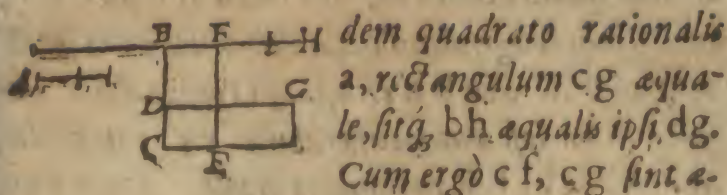 B F H
A
D G
C E
dem quadrato rationalis
a, rectangulum c g æqua-
le, sitq́; b h æqualis ipsi d g.
Cum ergò c f, c g sint æ-